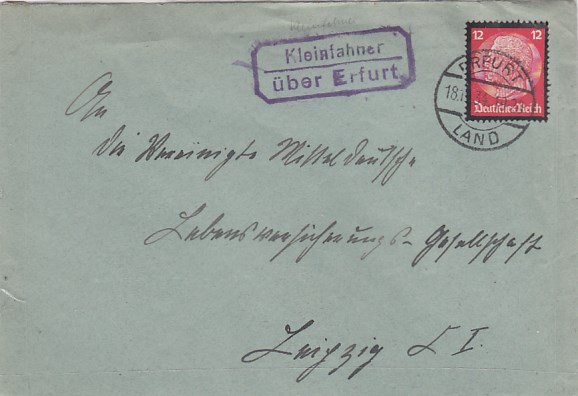 Kleinfahner
Kleinfahner
über Erfurt
12 12
Deutsches Reich
ERFURT
18.
LAND
An
die Vereinigte Mitteldeutsche
Lebensversicherungs-Gesellschaft
Leipzig C I.